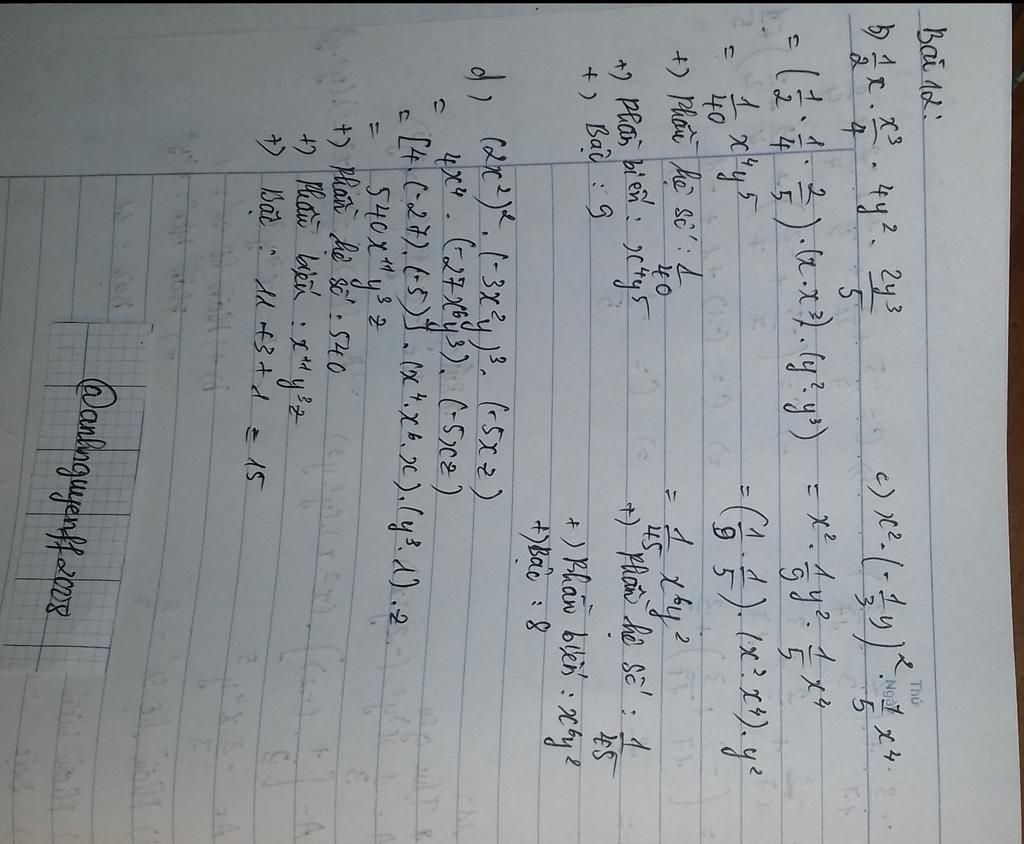 Bài 12:
b) 1/2 x . x³/4 . 4y² . 2y³/5
= (1/2 . 1/4 . 2/5) . (x . x³) . (y² . y³)
= 1/40 x⁴y⁵
+) Phần hệ số : 1/40
+) Phần biến : x⁴y⁵
+) Bậc : 9
c) x² . (-1/3 y)² . 1/5 x⁴
= x² . 1/9 y² . 1/5 x⁴
= (1/9 . 1/5) . (x² . x⁴) . y²
= 1/45 x⁶y²
+) Phần hệ số : 1/45
+) Phần biến : x⁶y²
+) Bậc : 8
d) (2x²)² . (-3x²y)³ . (-5xz)
= 4x⁴ . (-27x⁶y³) . (-5xz)
= [4 . (-27) . (-5)] . (x⁴ . x⁶ . x) . (y³ . 1) . z
= 540x¹¹y³z
+) Phần hệ số : 540
+) Phần biến : x¹¹y³z
+) Bậc : 11 + 3 + 1 = 15
Thứ
Ngày
@anhnguyenff2008